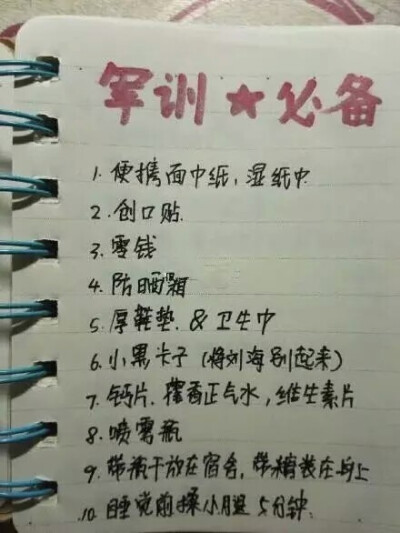 军训★必备
1. 便携面巾纸,湿纸巾
2. 创口贴.
3. 零钱
4. 防晒霜
5. 厚鞋垫. & 卫生巾
6. 小黑卡子 (将刘海别起来)
7. 钙片. 藿香正气水, 维生素片
8. 喷雾瓶
9. 放在宿舍, 装在身上
10. 睡觉前揉小腿 5分钟.